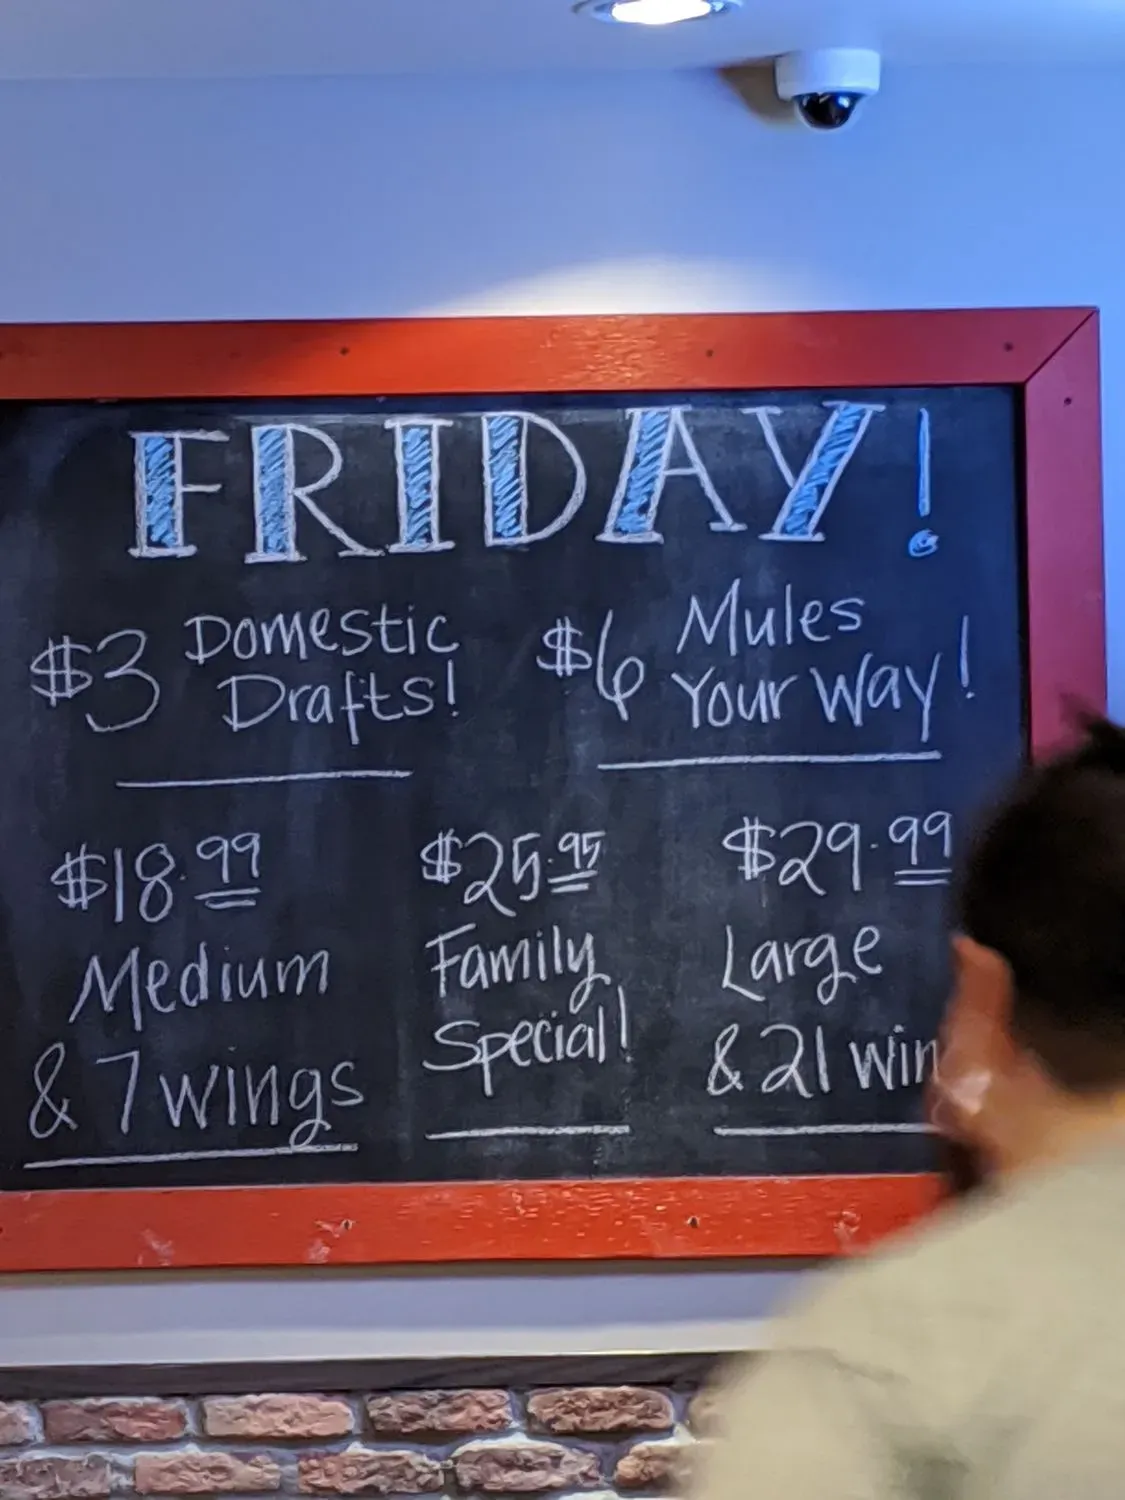 FRIDAY!
$3 Domestic
Drafts!
$6 Mules
Your Way!
$18.99
Medium
& 7 wings
$25.95
Family
Special!
$29.99
Large
& 21